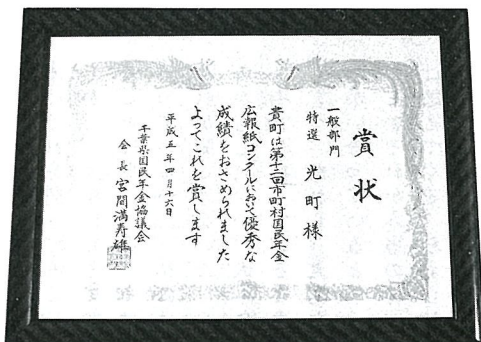 賞状
一般部門
特選 光町様
貴町は第十二回市町村国民年金
広報紙コンクールにおいて優秀な
成績をおさめられました
よってこれを賞します
平成五年四月十六日
千葉県国民年金協議会
会長 宮間満寿雄